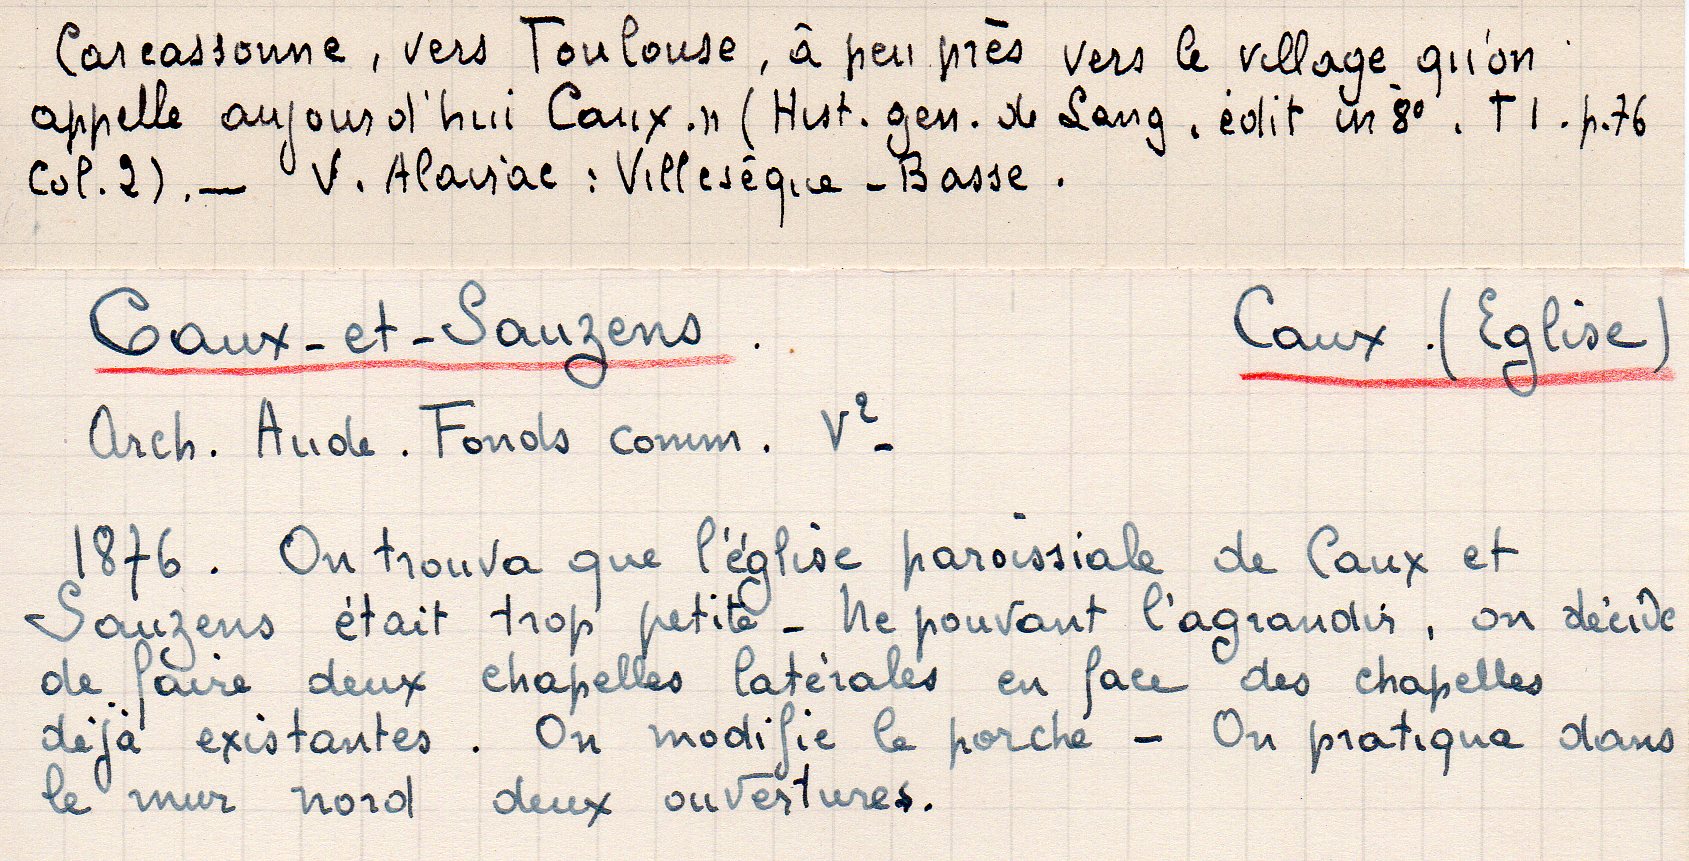 Carcassonne, vers Toulouse, à peu près vers le village qu'on
appelle aujourd'hui Caux.» (Hist. gen. de Lang, édit in 8°. T I. p.76
Col. 2). — V. Alairac : Villesèque - Basse.
Caux-et-Sauzens. Caux. (Eglise)
Arch. Aude. Fonds comm. V²-
1876. On trouva que l'église paroissiale de Caux et
Sauzens était trop petite - Ne pouvant l'agrandir, on décide
de faire deux chapelles latérales en face des chapelles
déjà existantes. On modifie le porche - On pratiqua dans
le mur nord deux ouvertures.